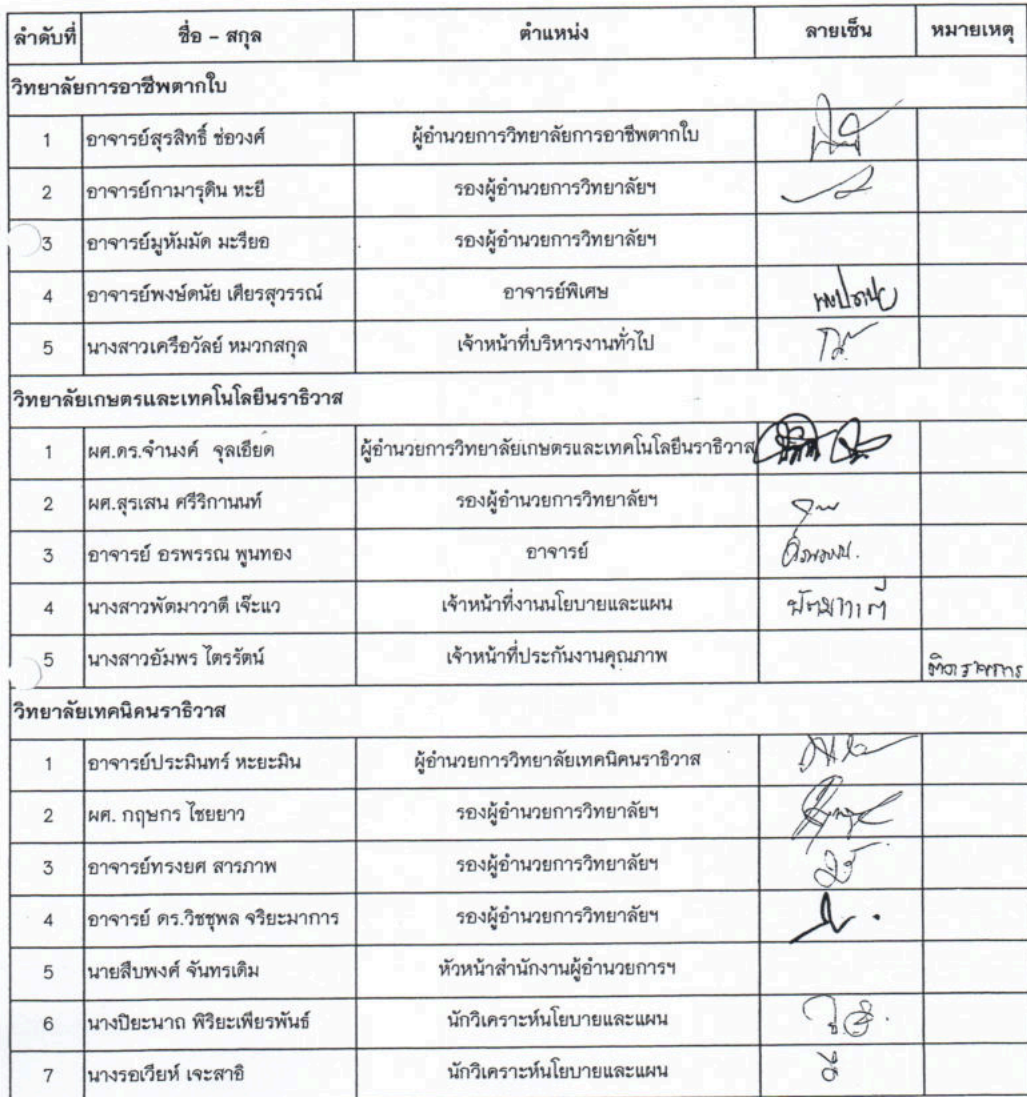 ลำดับที่ ชื่อ - สกุล ตำแหน่ง ลายเซ็น หมายเหตุ
วิทยาลัยการอาชีพตากใบ
1 อาจารย์สุรสิทธิ์ ช่อวงศ์ ผู้อำนวยการวิทยาลัยการอาชีพตากใบ
2 อาจารย์กามารุดิน หะยี รองผู้อำนวยการวิทยาลัยฯ
3 อาจารย์มูหัมมัด มะรียอ รองผู้อำนวยการวิทยาลัยฯ
4 อาจารย์พงษ์ดนัย เศียรสุวรรณ์ อาจารย์พิเศษ
5 นางสาวเครือวัลย์ หมวกสกุล เจ้าหน้าที่บริหารงานทั่วไป
วิทยาลัยเกษตรและเทคโนโลยีนราธิวาส
1 ผศ.ดร.จำนงค์ จุลเอียด ผู้อำนวยการวิทยาลัยเกษตรและเทคโนโลยีนราธิวาส
2 ผศ.สุรเสน ศรีริกานนท์ รองผู้อำนวยการวิทยาลัยฯ
3 อาจารย์ อรพรรณ พูนทอง อาจารย์
4 นางสาวพัตมาวาตี เจ๊ะแว เจ้าหน้าที่งานนโยบายและแผน พัตมาวาตี
5 นางสาวอัมพร ไตรรัตน์ เจ้าหน้าที่ประกันงานคุณภาพ ติดราชการ
วิทยาลัยเทคนิคนราธิวาส
1 อาจารย์ประมินทร์ หะยะมิน ผู้อำนวยการวิทยาลัยเทคนิคนราธิวาส
2 ผศ. กฤษกร ไชยยาว รองผู้อำนวยการวิทยาลัยฯ
3 อาจารย์ทรงยศ สารภาพ รองผู้อำนวยการวิทยาลัยฯ
4 อาจารย์ ดร.วิชชุพล จริยะมาการ รองผู้อำนวยการวิทยาลัยฯ
5 นายสืบพงศ์ จันทรเดิม หัวหน้าสำนักงานผู้อำนวยการฯ
6 นางปิยะนาถ พิริยะเพียรพันธ์ นักวิเคราะห์นโยบายและแผน
7 นางรอเวียห์ เจะสาอิ นักวิเคราะห์นโยบายและแผน